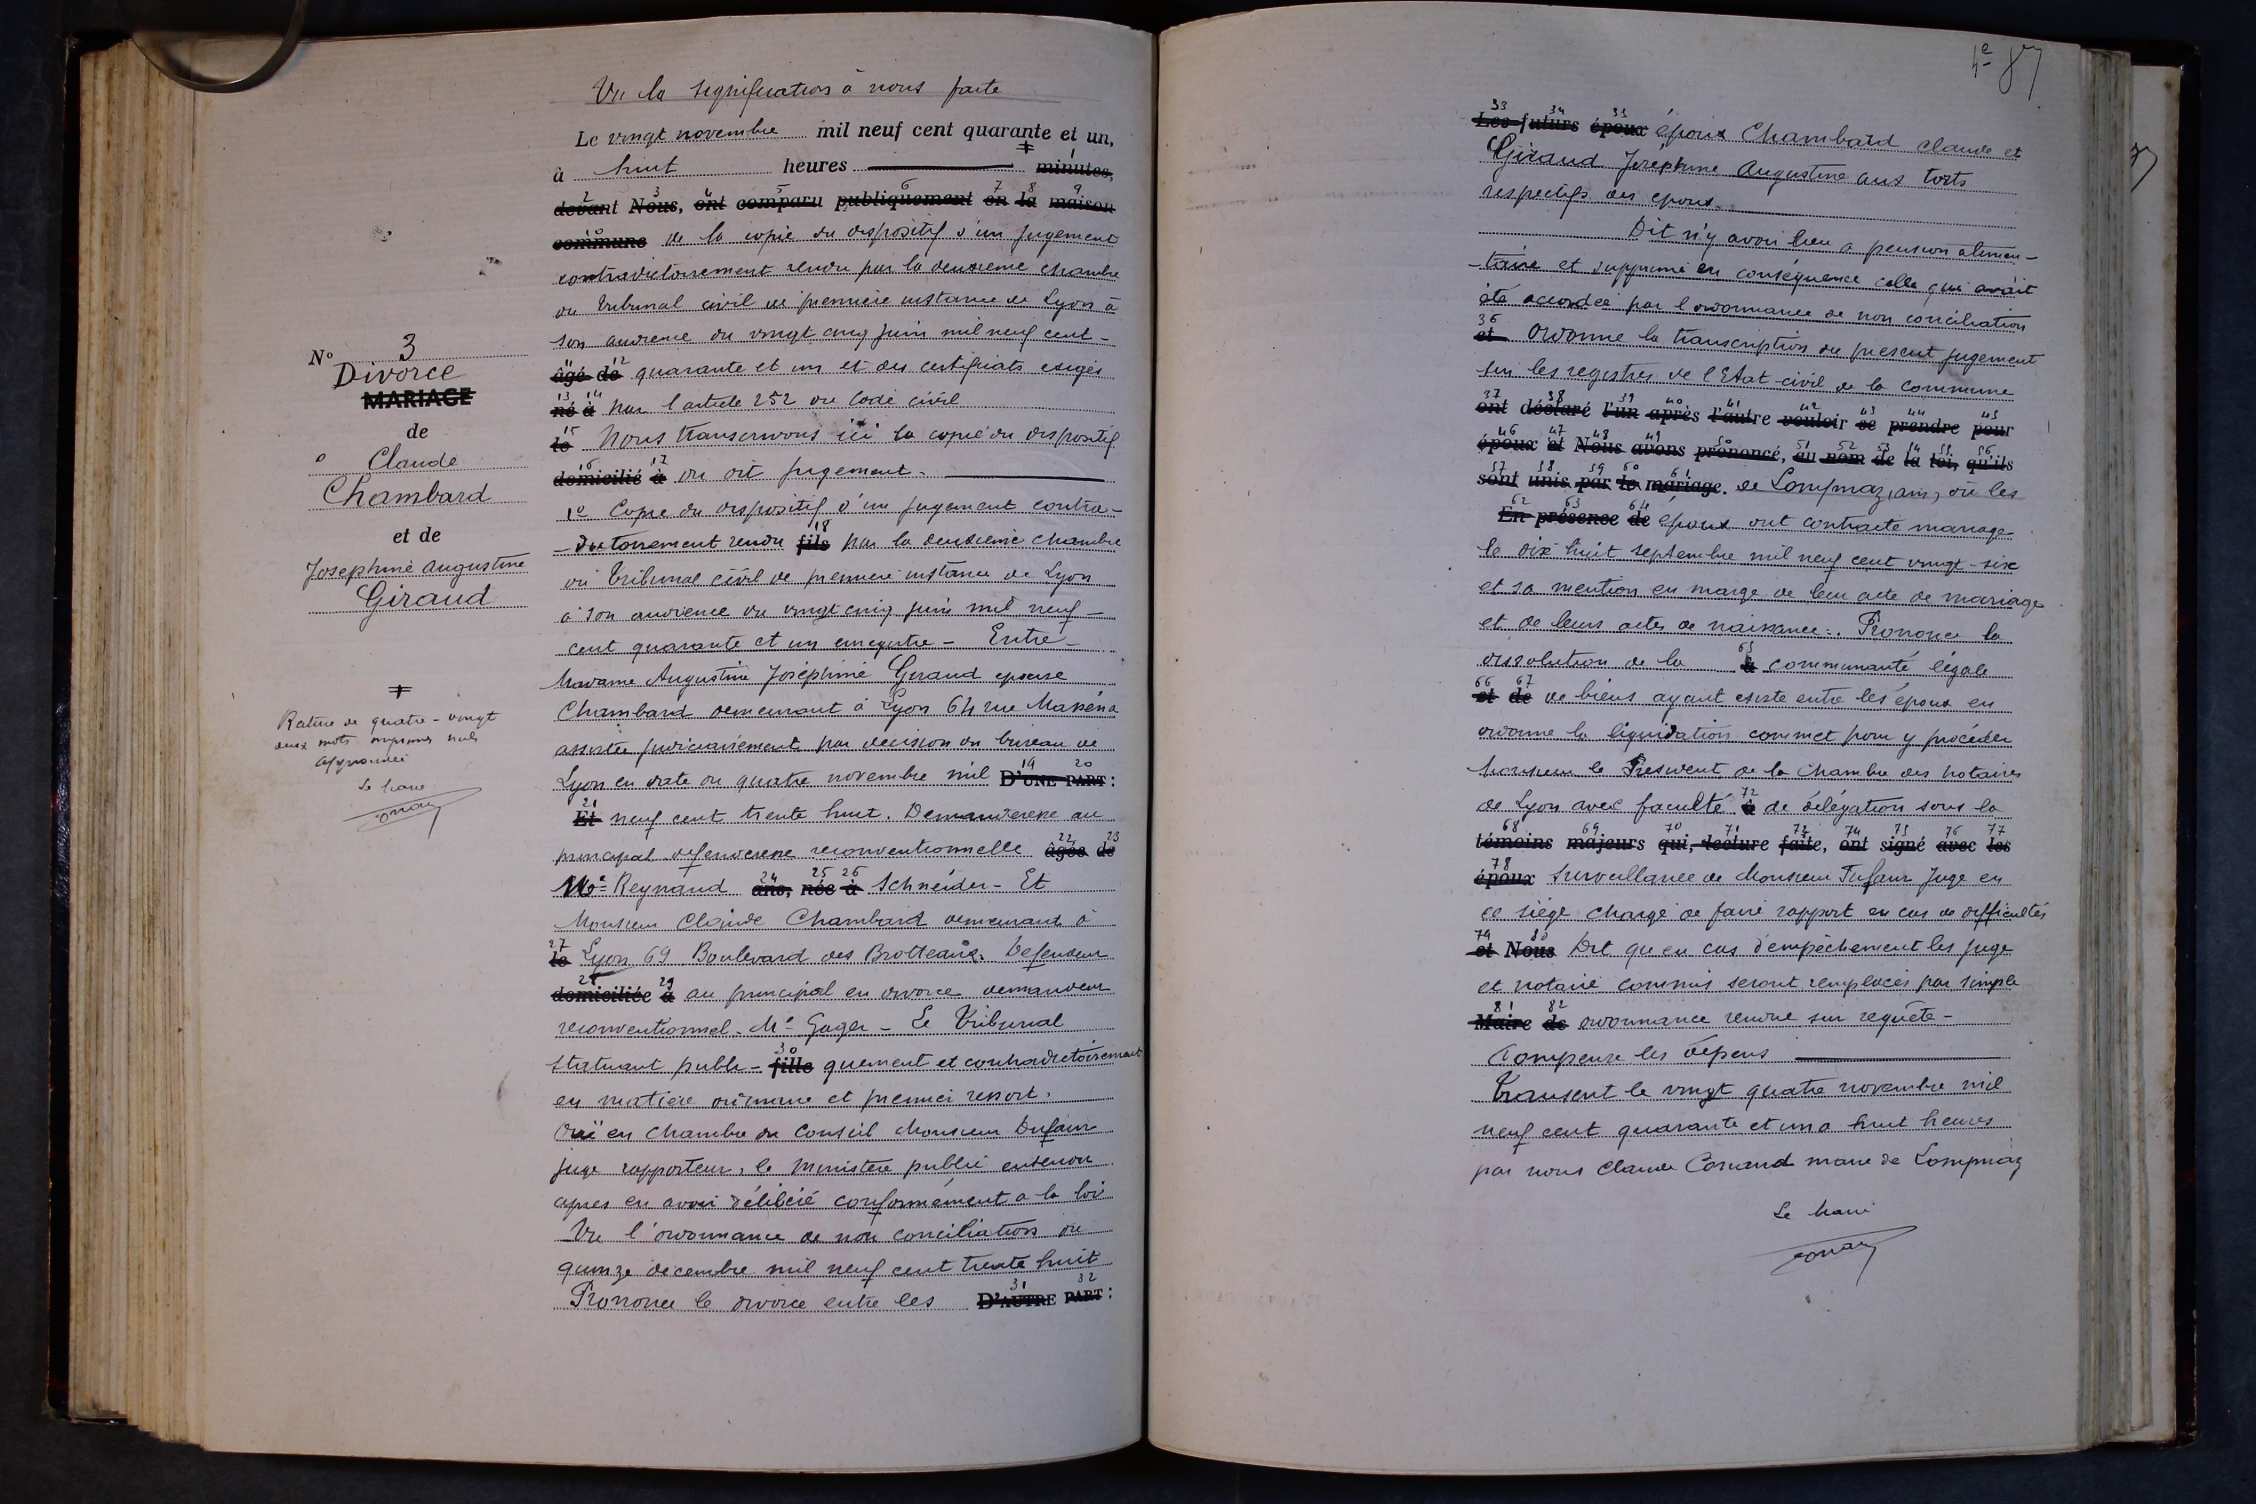 Vu la signification à nous faite
Le vingt novembre mil neuf cent quarante et un,
à huit heures ‡ 1 minutes,
2 3 4 5 6 7 8 9
devant Nous, ont comparu publiquement en la maison
10
commune de la copie du dispositif d'un jugement
contradictoirement rendu par la deuxième chambre
du tribunal civil de première instance de Lyon à
son audience du vingt cinq juin mil neuf cent -
11 12
âgé de quarante et un et des certificats exigés
13 14
né à par l'article 252 du Code civil
15
le Nous transcrivons ici la copie du dispositif
16 17
domicilié à du dit jugement.
1º Copie du dispositif d'un jugement contra-
18
-dictoirement rendu fils par la deuxième chambre
du tribunal civil de première instance de Lyon
à son audience du vingt cinq juin mil neuf -
cent quarante et un enregistré - Entre -
Madame Augustine Joséphine Giraud épouse
Chambard demeurant à Lyon 64 rue Masséna
assistée judiciairement par décision du bureau de
19 20
Lyon en date du quatre novembre mil D'UNE PART :
21
Et neuf cent trente huit. Demanderesse au
22 23
principal défenderesse reconventionnelle âgée de
24 25 26
Me Reynaud ans, née à Schneider - Et
Monsieur Claude Chambard demeurant à
27
le Lyon 69 Boulevard des Brotteaux. Défendeur
28 29
domiciliée à au principal en divorce demandeur
reconventionnel. Me Gager - Le Tribunal
30
Statuant publi- fille quement et contradictoirement
en matière ordinaire et premier ressort.
Ouï en Chambre du Conseil Monsieur Dufaur
juge rapporteur, le Ministère public entendu
après en avoir délibéré conformément à la loi
Vu l'ordonnance de non conciliation du
quinze décembre mil neuf cent trente huit
31 32
Prononce le divorce entre les D'AUTRE PART :
Nº 3
Divorce
MARIAGE
de
Claude
Chambard
et de
Joséphine Augustine
Giraud
‡
Rature de quatre-vingt
deux mots imprimés nuls
approuvée
Le Maire
4e 87
33 34 35
Les futurs époux époux Chambard Claude et
Giraud Joséphine Augustine aux torts
respectifs des époux.
Dit n'y avoir lieu à pension alimen-
-taire et supprime en conséquence celle qui avait
été accordée par l'ordonnance de non conciliation
36
et Ordonne la transcription du présent jugement
sur les registres de l'Etat-civil de la commune
37 38 39 40 41 42 43 44 45
ont déclaré l'un après l'autre vouloir se prendre pour
46 47 48 49 50 51 52 53 54 55 56
époux et Nous avons prononcé, au nom de la loi, qu'ils
57 58 59 60 61
sont unis par le mariage. de Lompnaz, ain, où les
62 63 64
En présence de époux ont contracté mariage
le dix huit septembre mil neuf cent vingt-six
et sa mention en marge de leur acte de mariage
et de leurs actes de naissance. Prononce la
65
dissolution de la à communauté légale
66 67
et de de biens ayant existé entre les époux en
ordonne la liquidation commet pour y procéder
Monsieur le Président de la Chambre des notaires
72
de Lyon avec faculté à de délégation sous la
68 69 70 71 73 74 75 76 77
témoins majeurs qui, lecture faite, ont signé avec les
78
époux surveillance de Monsieur Dufaur Juge en
ce siège chargé de faire rapport en cas de difficultés
79 80
et Nous Dit qu'en cas d'empêchement les juge
et notaire commis seront remplacés par simple
81 82
Maire de ordonnance rendue sur requête -
Compense les dépens
Transcrit le vingt quatre novembre mil
neuf cent quarante et un à huit heures
par nous Claude Conand maire de Lompnaz
Le Maire